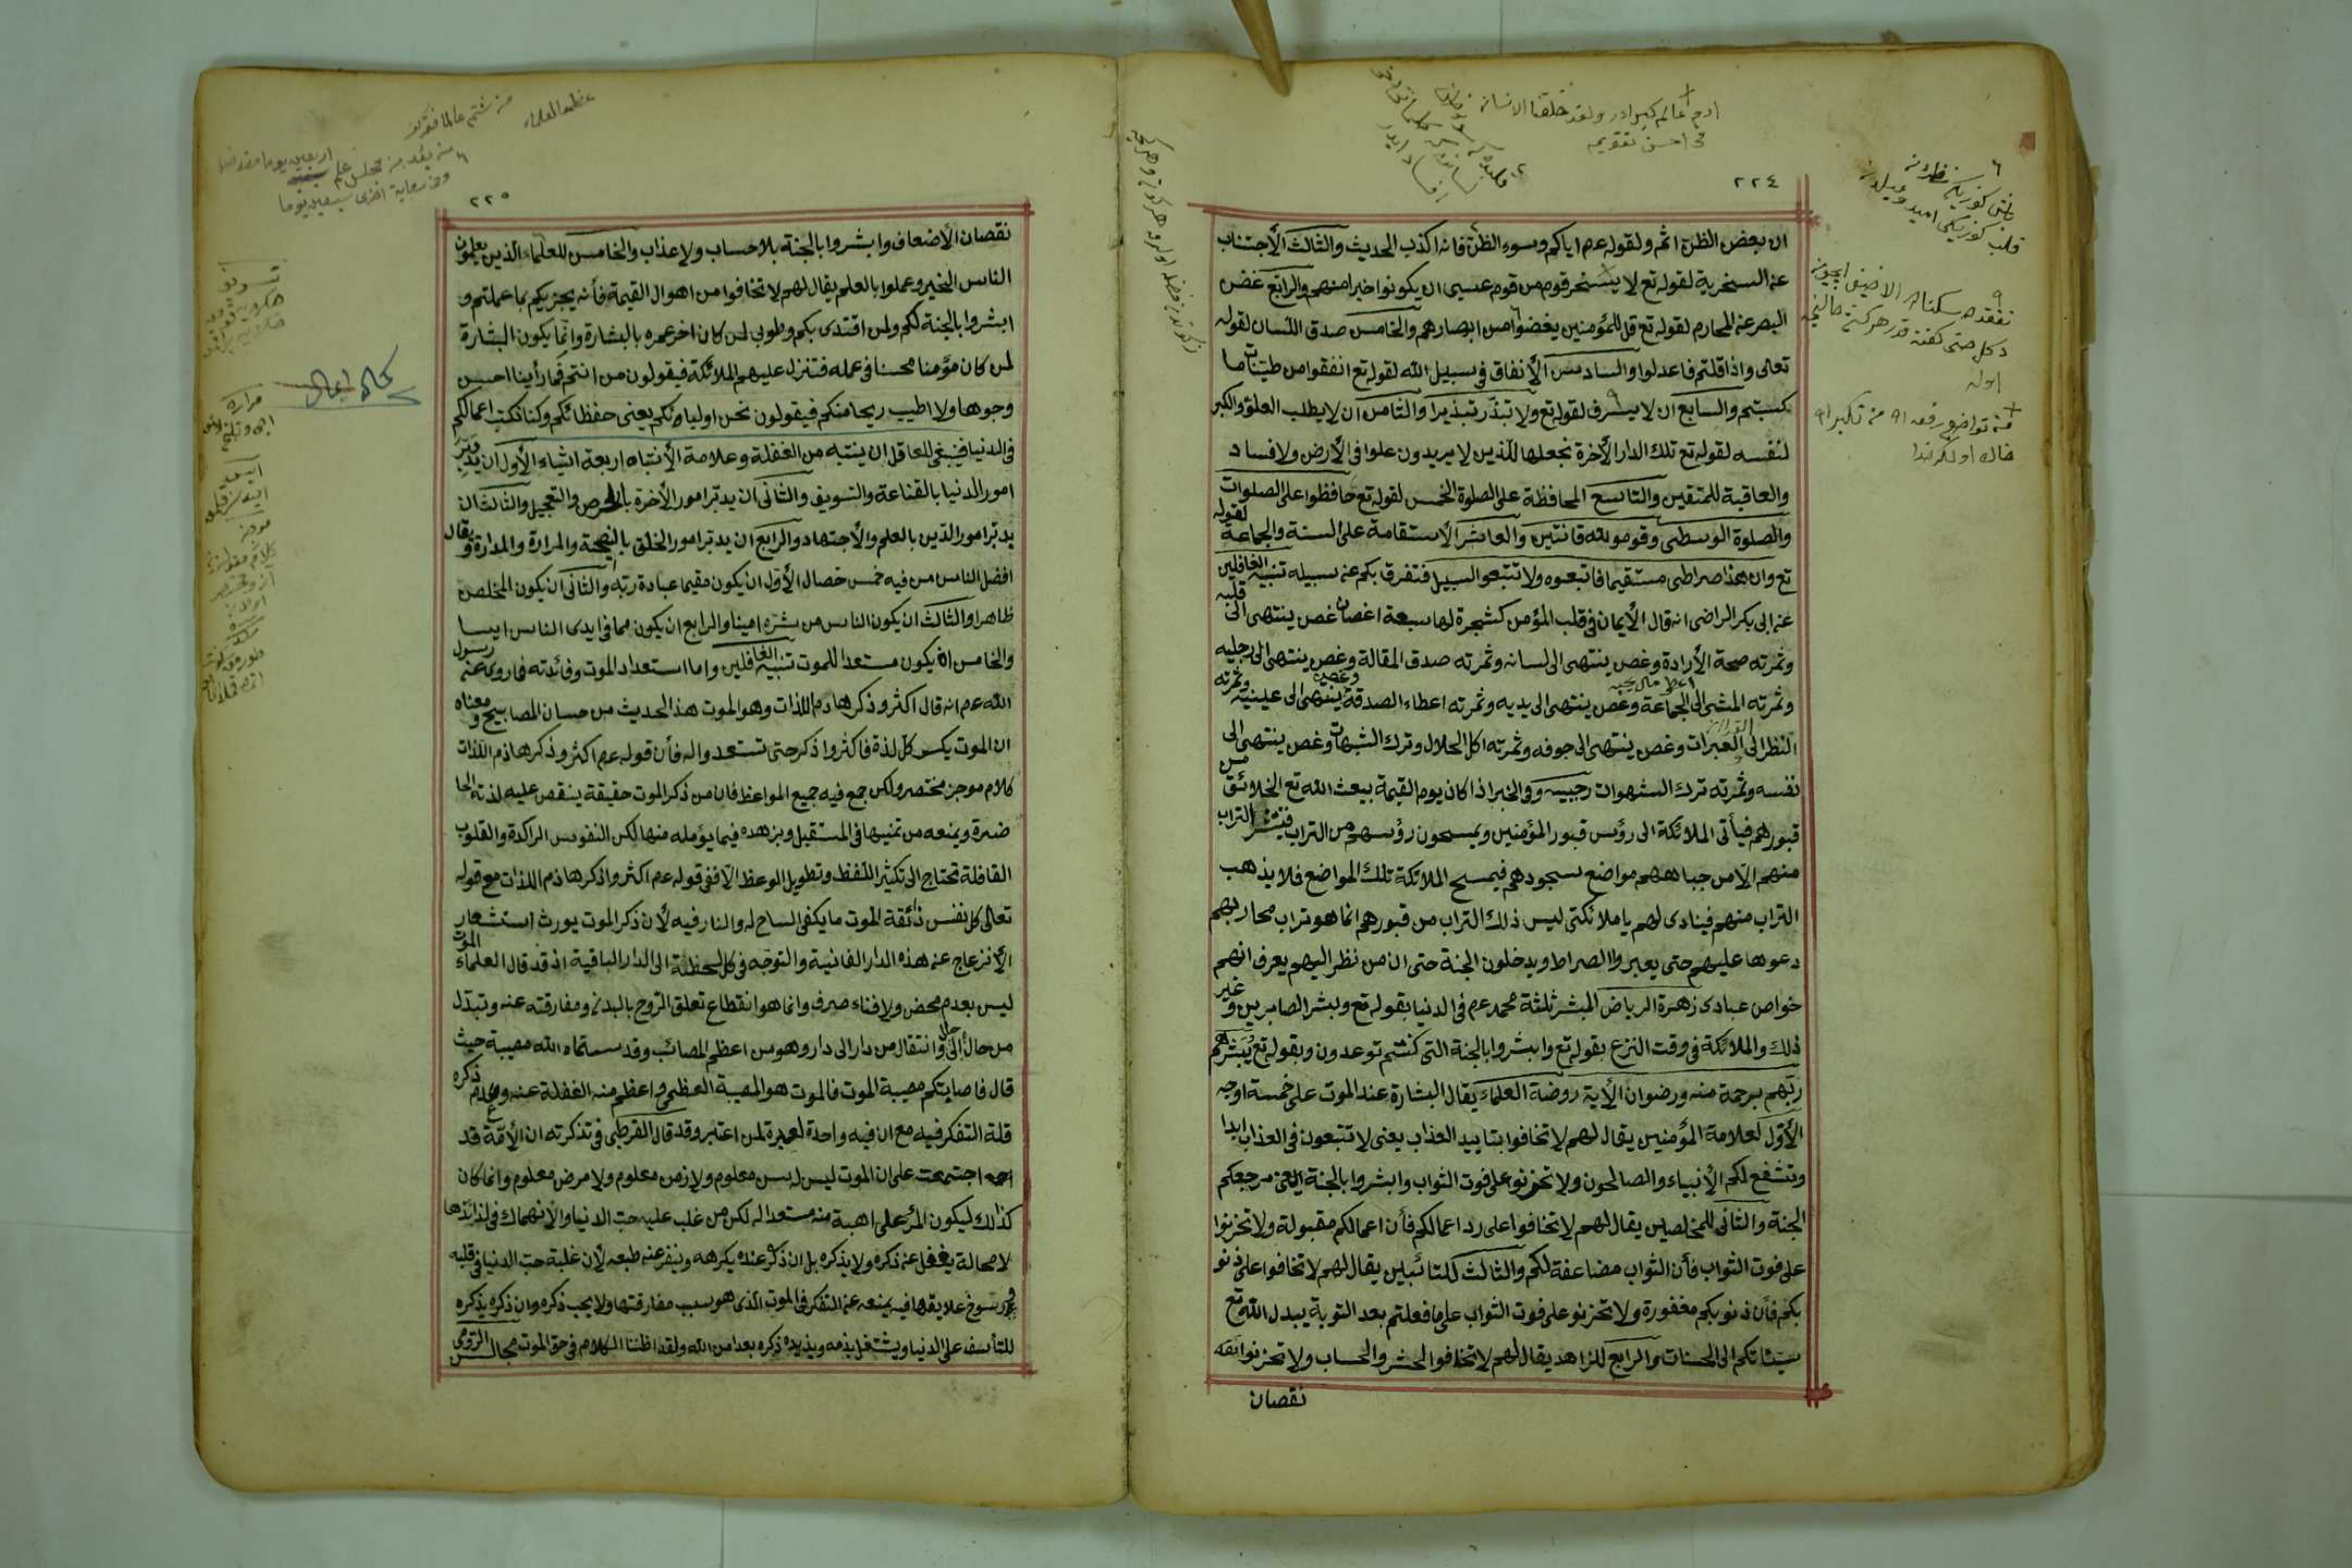 ٢٢٤
ان بعض الظن اثم ولقوله عم اياكم وسوء الظن فانه اكذب الحديث والثالث الأجتناب
عن السخرية لقوله تع لا يسخر قوم من قوم عسى ان يكونوا خيرا منهم والرابع غض
البصر عن المحارم لقوله تع قل للمؤمنين يغضوا من ابصارهم والخامس صدق اللسان لقوله
تعالى واذا قلتم فاعدلوا والسادس الأنفاق فى سبيل الله لقوله تع انفقوا من طيبات ما
كسبتم والسابع ان لا يسرف لقوله تع ولا تبذر تبذيرا والثامن ان لا يطلب العلو والكبر
لنفسه لقوله تع تلك الدار الأخرة نجعلها للذين لا يريدون علوا فى الأرض ولا فساد
والعاقبة للمتقين والتاسع المحافظة على الصلوة الخمس لقوله تع حافظوا على الصلوات
والصلوة الوسطى وقومو لله قانتين والعاشر الأستقامة على السنة والجماعة لقوله
تع وان هذا صراطى مستقيما فاتبعوه ولا تتبعو السبيل فتفرق بكم عن سبيله تنبيه الغافلين
عن ابى بكر الراضى انه قال الأيمان فى قلب المؤمن كشجرة لها سبعة اغصان غصن ينتهى الى قلبه
وثمرته صحة الأرادة وغصن ينتهى الى لسانه وثمرته صدق المقالة وغصن ينتهى الى رجليه
وثمرته المشى الى الجماعة وغصن ينتهى الى يديه وثمرته اعطاء الصدقة وغصن ينتهى الى عينيه وثمرته
النظر الى العبرات وغصن ينتهى الى جوفه وثمرته اكل الحلال وترك الشبهات وغصن ينتهى الى
نفسه وثمرته ترك الشهوات رجبيه وفى الخبر اذا كان يوم القيمة يبعث الله تع الخلائق من
قبورهم فيأتى الملائكة الى رؤس قبور المؤمنين ويمسحون رؤسهم من التراب فينتشر التراب
منهم الا من جباههم مواضع سجودهم فيمسح الملائكة تلك المواضع فلا يذهب
التراب منهم فينادى لهم يا ملائكتى ليس ذلك التراب من قبورهم انما هو تراب محاربهم
دعوها عليهم حتى يعبروا الصراط ويدخلون الجنة حتى ان من نظر اليهم يعرف انهم
خواص عبادى زهرة الرياض المبشر ثلثة محمد عم فى الدنيا بقوله تع وبشر الصابرين وغير
ذلك والملائكة فى وقت النزع بقوله تع وابشروا بالجنة التى كنتم توعدون وبقوله تع يبشرهم
ربهم برحمة منه ورضوان الأية روضة العلماء يقال البشارة عند الموت على خمسة اوجه
الأول لعلامة المؤمنين يقال لهم لا تخافوا بتابيد العذاب يعنى لا تتبعون فى العذاب ابدا
وتشفع لكم الأنبياء والصالحون ولا تحزنو على فوت الثواب وابشروا بالجنة يعنى مرجعكم
الجنة والثانى للمخلصين يقال لهم لا تخافوا على رد اعمالكم فأن اعمالكم مقبولة ولا تحزنوا
على فوت الثواب فأن الثواب مضاعفة لكم والثالث للتائبين يقال لهم لا تخافوا على ذنو
بكم فأن ذنوبكم مغفورة ولا تحزنو على فوت الثواب على ما فعلتم بعد التوبة يبدل الله تع
سيئاتكم الى الحسنات والرابع للزاهد يقال لهم لا تخافوا الحشر والحساب ولا تحزنوا
نقصان
ادم عالم كبرادر ولقد خلقنا الانسان
فى احسن تقويم
٢٢٥
نقصان الأضعاف وابشروا بالجنة بلا حساب ولا عذاب والخامس للعلماء الذين يعلمون
الناس الخير وعملوا بالعلم يقال لهم لا تخافوا من اهوال القيمة فأنه يجزيكم بما عملتم و
ابشروا بالجنة لكم ولمن اقتدى بكم وطوبى لمن كان اخر عمره بالبشارة وانما يكون البشارة
لمن كان مؤمنا محسنا فى عمله فتنزل عليهم الملائكة فيقولون من انتم فما رأينا احسن
وجوها ولا اطيب ريحا منكم فيقولون نحن اولياؤكم يعنى حفظائكم وكنا نكتب اعمالكم
فى الدنيا فينبغى للعاقل ان ينتبه من الغفلة وعلامة الأنتباه اربعة اشاء الأول ان يدبر
امور الدنيا بالقناعة والتسويف والثانى ان يدبر امور الأخرة بالحرص والتعجيل والثالث ان
يدبر امور الدين بالعلم والأجتهاد والرابع ان يدبر امور الخلق بالنصيحة والمرارة والمدارة ويقال
افضل الناس من فيه خمس خصال الأول ان يكون مقيما عبادة ربه والثانى ان يكون المخلص
ظاهرا والثالث ان يكون الناس من شره امينا والرابع ان يكون مما فى ايدى الناس ايسا
والخامس ان يكون مستعدا للموت تنبيه الغافلين واما استعداد الموت وفائدته فما روى عن رسول
الله عم انه قال اكثرو ذكر هادم اللذات وهو الموت هذا الحديث من حسان المصابيح ومعناه
ان الموت يكسر كل لذة فاكثروا ذكر حتى تستعدوا له فأن قوله عم اكثرو ذكر هاذم اللذات
كلام موجز مختصر ولكن جمع فيه جميع المواعظ فان من ذكر الموت حقيقة ينقص عليه لذته الحا
ضرة ويمنعه من تمنيها فى المستقبل ويزهده فيما يؤمله منها لكن النفوس الراكدة والقلوب
الغافلة تحتاج الى تكثير اللفظ وتطويل الوعظ الا ففى قوله عم اكثرو اذكر هاذم اللذات مع قوله
تعالى كل نفس ذائقة الموت ما يكفى السامع له والناظر فيه لأن ذكر الموت يورث استشعار
الأنزعاج عن هذه الدار الفانية والتوجه فى كل لحظة الى الدار الباقية اذ قد قال العلماء الموت
ليس بعدم محض ولا فناء صرف وانما هو انقطاع تعلق الروح بالبدن ومفارقته عنه وتبدل
من حال الى حال وانتقال من دار الى دار وهو من اعظم المصائب وقد سماه الله مصيبة حيث
قال فاصابتكم مصيبة الموت فالموت هو المصيبة العظمى واعظم منه الغفلة عنه وعدم ذكره
قلة التفكر فيه مع ان فيه واحدة لعبرة لمن اعتبر وقد قال القرطبى فى تذكرته ان الأمة قد
اجتمعت على ان الموت ليس له سن معلوم ولا زمن معلوم ولا مرض معلوم وانما كان
كذلك ليكون المرء على اهبة منه مستعدا له لكن من غلب عليه حب الدنيا والأنهماك فى لذائذها
لا محالة يغفل عن ذكره ولا يذكره بل ان ذكر عنده يكرهه وينفر عنه طبعه لأن غلبة حب الدنيا فى قلبه
ورسوخ علايقها فيه يمنعه عن التفكر فى الموت الذى هو سبب مفارقتها ولا يحب ذكره وان ذكره يذكره
للتأسف على الدنيا ويشتغل بذمه ويزيده ذكره بعدا من الله ولقد اظننا الكلام فى حق الموت مجالس الرومى